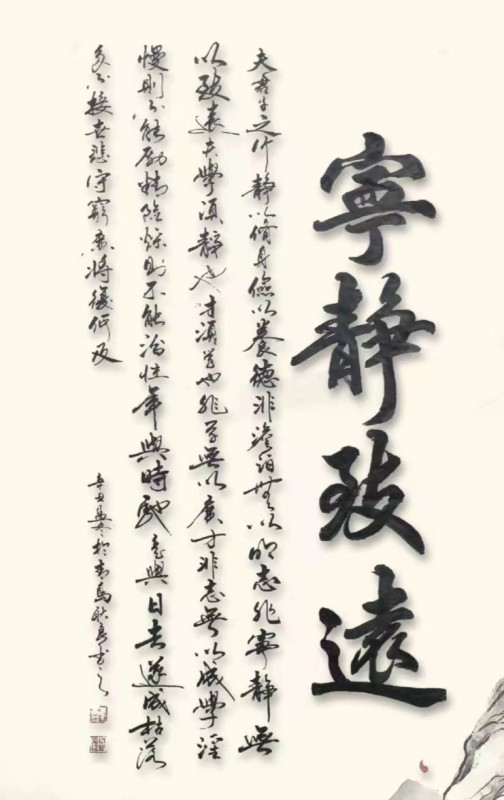 寧靜致遠
夫君子之行靜以脩身儉以養德非澹泊無以明志非寧靜無
以致遠夫學須靜也才須學也非學無以廣才非志無以成學淫
慢則不能勵精險躁則不能治性年與時馳意與日去遂成枯落
多不接世悲守窮廬將復何及
辛丑孟冬於青島